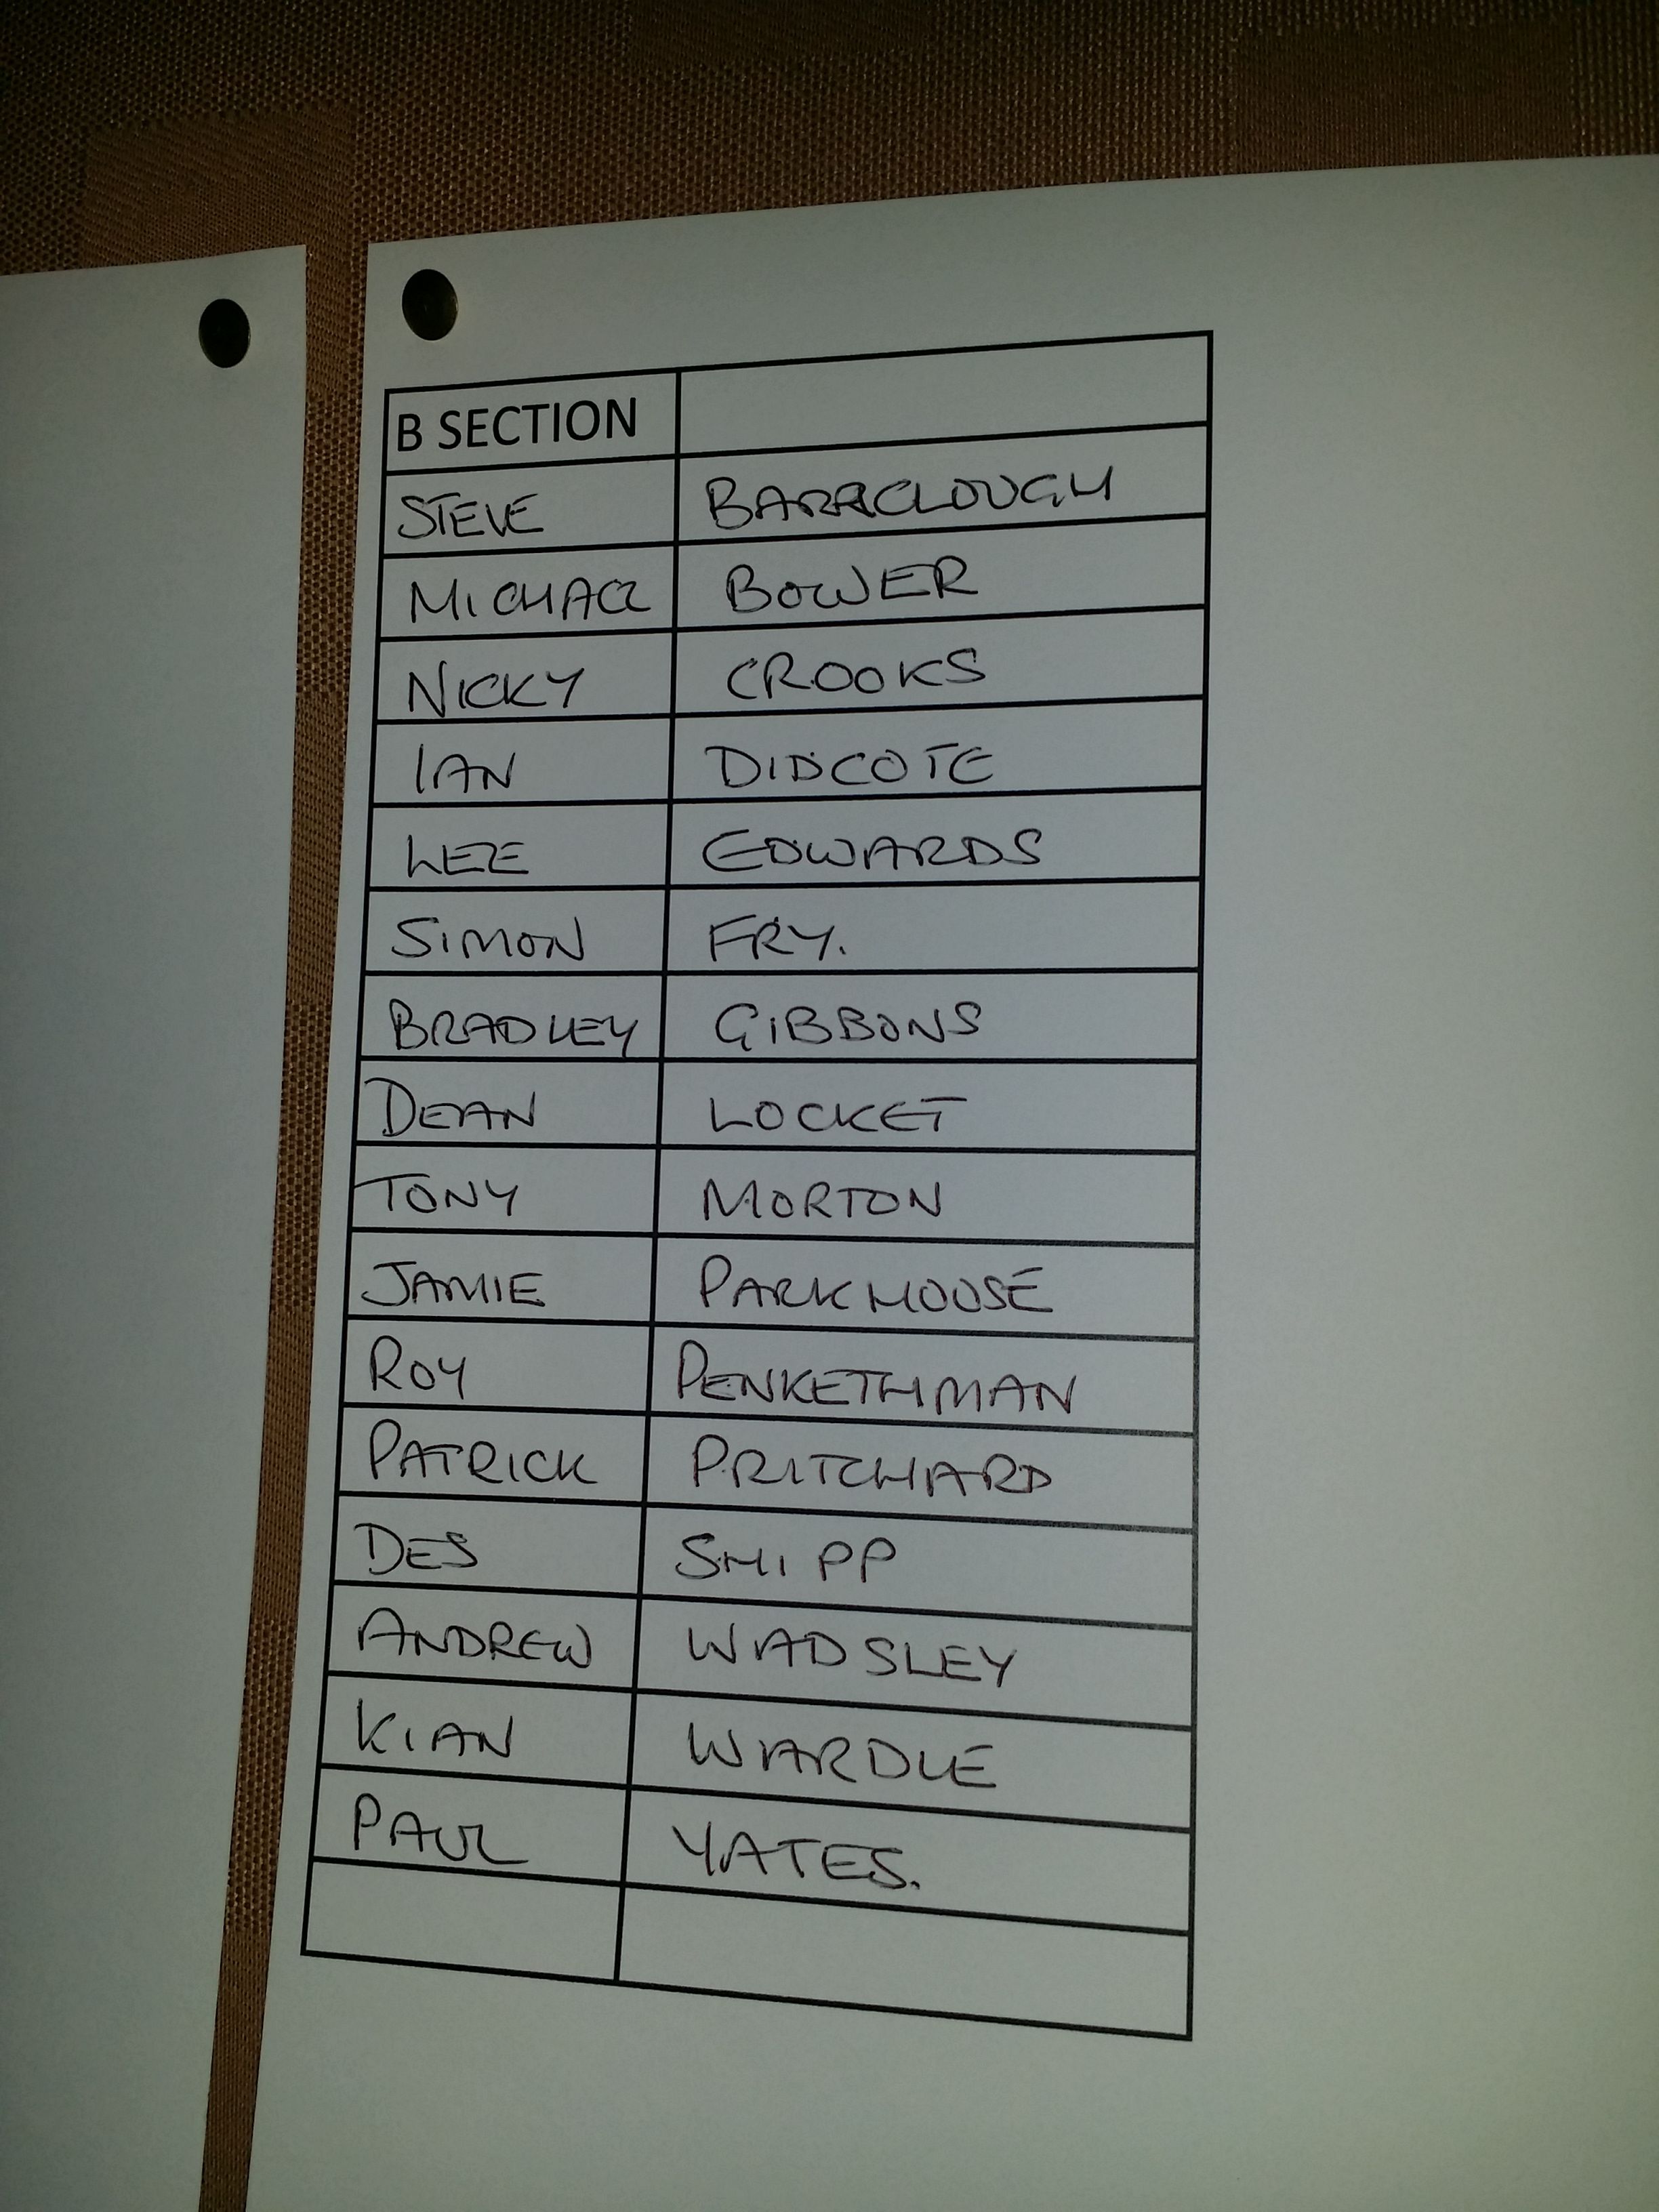 B SECTION
STEVE BARRACLOUGH
MICHAEL BOWER
NICKY CROOKS
IAN DIDCOTE
LEE EDWARDS
SIMON FRY.
BRADLEY GIBBONS
DEAN LOCKET
TONY MORTON
JAMIE PARKHOUSE
ROY PENKETHMAN
PATRICK PRITCHARD
DES SHIPP
ANDREW WADSLEY
KIAN WARDLE
PAUL YATES.